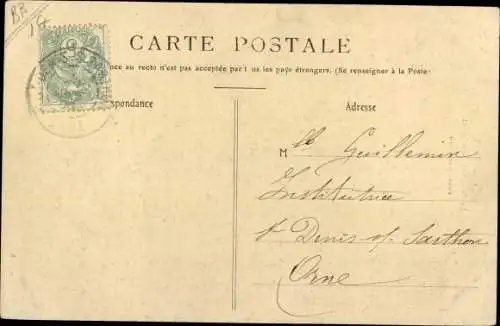 BR
CARTE POSTALE
nce au recto n'est pas acceptée par t us les pays étrangers. (Se renseigner à la Poste
pondance
Adresse
M lle Guillemin
Institutrice
St Denis s/ Sarthon
Orne